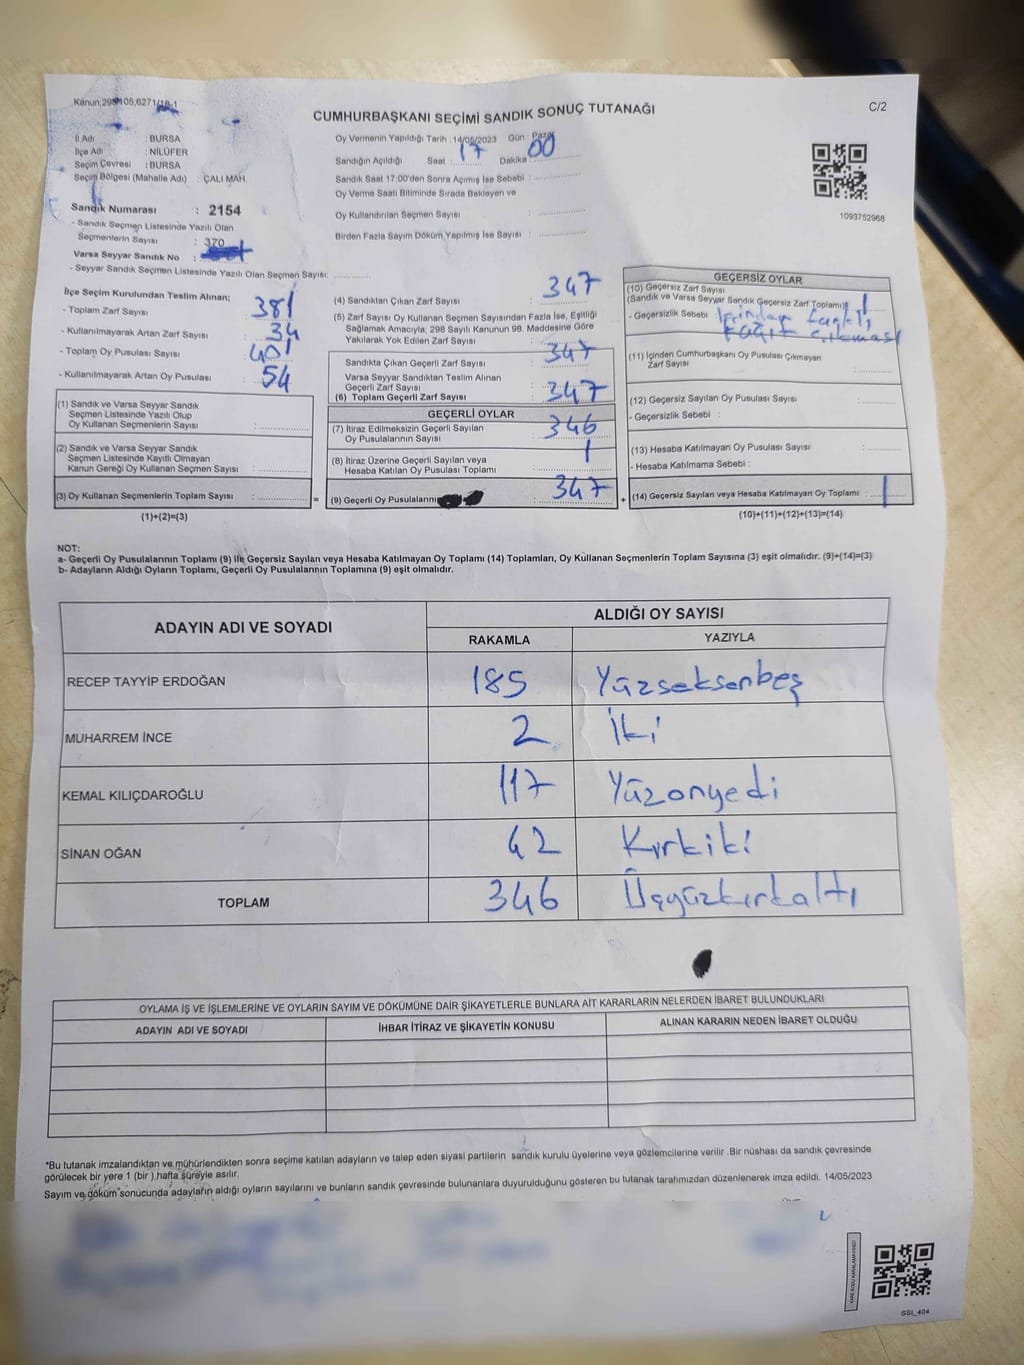 Kanun,298,105,6271/18-1
C/2
CUMHURBAŞKANI SEÇİMİ SANDIK SONUÇ TUTANAĞI
İl Adı : BURSA
İlçe Adı : NİLÜFER
Seçim Çevresi : BURSA
Seçim Bölgesi (Mahalle Adı) : ÇALI MAH.
Sandık Numarası : 2154
- Sandık Seçmen Listesinde Yazılı Olan
Seçmenlerin Sayısı : 370
Varsa Seyyar Sandık No :
- Seyyar Sandık Seçmen Listesinde Yazılı Olan Seçmen Sayısı:
Oy Vermenin Yapıldığı Tarih : 14/05/2023 Gün : Pazar
Sandığın Açıldığı Saat : 17 Dakika : 00
Sandık Saat 17:00'den Sonra Açımış İse Sebebi :
Oy Verme Saati Bitiminde Sırada Bekleyen ve
Oy Kullandırılan Seçmen Sayısı :
Birden Fazla Sayım Döküm Yapılmış İse Sayısı :
1093752968
İlçe Seçim Kurulundan Teslim Alınan;
- Toplam Zarf Sayısı : 381
- Kullanılmayarak Artan Zarf Sayısı : 34
- Toplam Oy Pusulası Sayısı : 401
- Kullanılmayarak Artan Oy Pusulası : 54
(1) Sandık ve Varsa Seyyar Sandık
Seçmen Listesinde Yazılı Olup
Oy Kullanan Seçmenlerin Sayısı :
(2) Sandık ve Varsa Seyyar Sandık
Seçmen Listesinde Kayıtlı Olmayan
Kanun Gereği Oy Kullanan Seçmen Sayısı :
(3) Oy Kullanan Seçmenlerin Toplam Sayısı : =
(1)+(2)=(3)
(4) Sandıktan Çıkan Zarf Sayısı : 347
(5) Zarf Sayısı Oy Kullanan Seçmen Sayısından Fazla İse, Eşitliği
Sağlamak Amacıyla, 298 Sayılı Kanunun 98. Maddesine Göre
Yakılarak Yok Edilen Zarf Sayısı :
Sandıkta Çıkan Geçerli Zarf Sayısı : 347
Varsa Seyyar Sandıktan Teslim Alınan
Geçerli Zarf Sayısı :
(6) Toplam Geçerli Zarf Sayısı : 347
GEÇERLİ OYLAR
(7) İtiraz Edilmeksizin Geçerli Sayılan
Oy Pusulalarının Sayısı : 346
(8) İtiraz Üzerine Geçerli Sayılan veya
Hesaba Katılan Oy Pusulası Toplamı : 1
(9) Geçerli Oy Pusulalarını : 347 +
GEÇERSİZ OYLAR
(10) Geçersiz Zarf Sayısı
(Sandık ve Varsa Seyyar Sandık Geçersiz Zarf Toplamı) : 1
- Geçersizlik Sebebi : İçinden farklı,
kağıt çıkması
(11) İçinden Cumhurbaşkanı Oy Pusulası Çıkmayan
Zarf Sayısı :
(12) Geçersiz Sayılan Oy Pusulası Sayısı :
- Geçersizlik Sebebi :
(13) Hesaba Katılmayan Oy Pusulası Sayısı :
- Hesaba Katılmama Sebebi :
(14) Geçersiz Sayılan veya Hesaba Katılmayan Oy Toplamı : 1
(10)+(11)+(12)+(13)=(14)
NOT:
a- Geçerli Oy Pusulalarının Toplamı (9) ile Geçersiz Sayılan veya Hesaba Katılmayan Oy Toplamı (14) Toplamları, Oy Kullanan Seçmenlerin Toplam Sayısına (3) eşit olmalıdır. (9)+(14)=(3)
b- Adayların Aldığı Oyların Toplamı, Geçerli Oy Pusulalarının Toplamına (9) eşit olmalıdır.
ADAYIN ADI VE SOYADI
ALDIĞI OY SAYISI
RAKAMLA YAZIYLA
RECEP TAYYİP ERDOĞAN 185 Yüzseksenbeş
MUHARREM İNCE 2 İki
KEMAL KILIÇDAROĞLU 117 Yüzonyedi
SİNAN OĞAN 42 Kırkiki
TOPLAM 346 Üçyüzkırkaltı
OYLAMA İŞ VE İŞLEMLERİNE VE OYLARIN SAYIM VE DÖKÜMÜNE DAİR ŞİKAYETLERLE BUNLARA AİT KARARLARIN NELERDEN İBARET BULUNDUKLARI
ADAYIN ADI VE SOYADI İHBAR İTİRAZ VE ŞİKAYETİN KONUSU ALINAN KARARIN NEDEN İBARET OLDUĞU
*Bu tutanak imzalandıktan ve mühürlendikten sonra seçime katılan adayların ve talep eden siyasi partilerin sandık kurulu üyelerine veya gözlemcilerine verilir .Bir nüshası da sandık çevresinde
görülecek bir yere 1 (bir ) hafta süreyle asılır.
Sayım ve döküm sonucunda adayların aldığı oyların sayılarını ve bunların sandık çevresinde bulunanlara duyurulduğunu gösteren bu tutanak tarafımızdan düzenlenerek imza edildi. 14/05/2023
KARE KODU KARALAMAYINIZ!
SSI_404